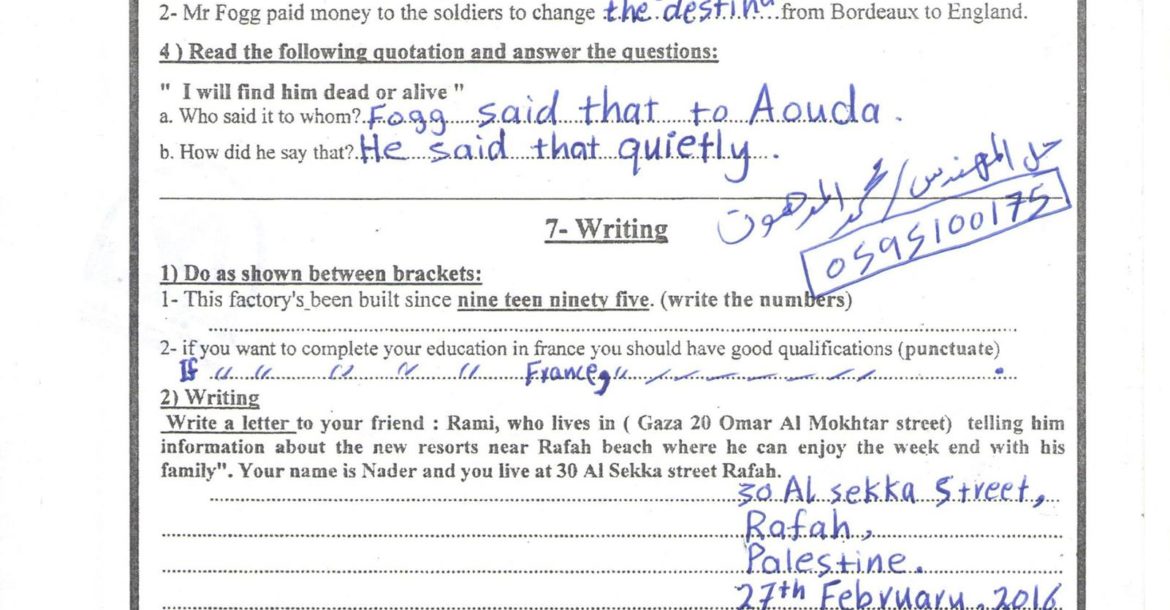 2- Mr Fogg paid money to the soldiers to change the destina from Bordeaux to England.
4 ) Read the following quotation and answer the questions:
" I will find him dead or alive "
a. Who said it to whom? Fogg said that to Aouda.
b. How did he say that? He said that quietly.
حل المهندس / محمد المدهون
0595100175
7- Writing
1) Do as shown between brackets:
1- This factory's been built since nine teen ninety five. (write the numbers)
2- if you want to complete your education in france you should have good qualifications (punctuate)
If " " " " " France, " .
2) Writing
Write a letter to your friend : Rami, who lives in ( Gaza 20 Omar Al Mokhtar street) telling him
information about the new resorts near Rafah beach where he can enjoy the week end with his
family". Your name is Nader and you live at 30 Al Sekka street Rafah.
30 Al sekka Street,
Rafah,
Palestine.
27th February, 2016